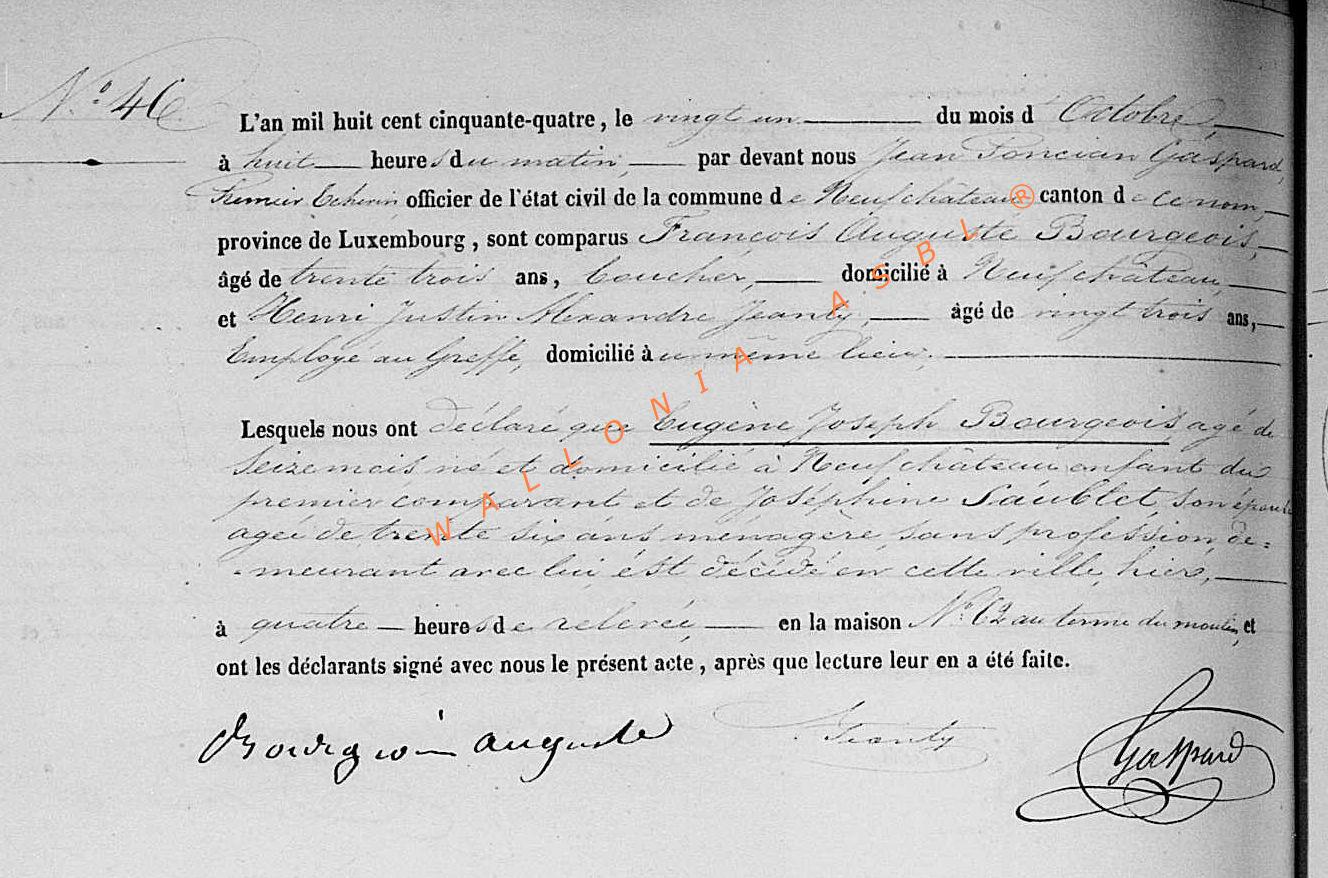 N.º 46
L'an mil huit cent cinquante-quatre, le vingt un du mois d'Octobre,
à huit heures du matin, par devant nous Jean Poncian Gaspard,
Premier Echevin, officier de l'état civil de la commune de Neufchâteau canton de ce nom,
province de Luxembourg, sont comparus François Auguste Bourgeois,
âgé de trente trois ans, boucher, domicilié à Neufchâteau,
et Henri Justin Alexandre Jeanty, âgé de vingt trois ans,
Employé au Greffe, domicilié au même lieu,
Lesquels nous ont déclaré que Eugène Joseph Bourgeois agé de
seize mois né et domicilié à Neufchâteau enfant du
premier comparant et de Joséphine son épouse
agée de trente six ans ménagère, sans profession, de=
=meurant avec lui, est décédé en cette ville, hier,
à quatre heures de relevée, en la maison N.º 62 au terme du moulin, et
ont les déclarants signé avec nous le présent acte, après que lecture leur en a été faite.
Bourgeois auguste Jeanty Gaspard
WALLONIA ASBL ®